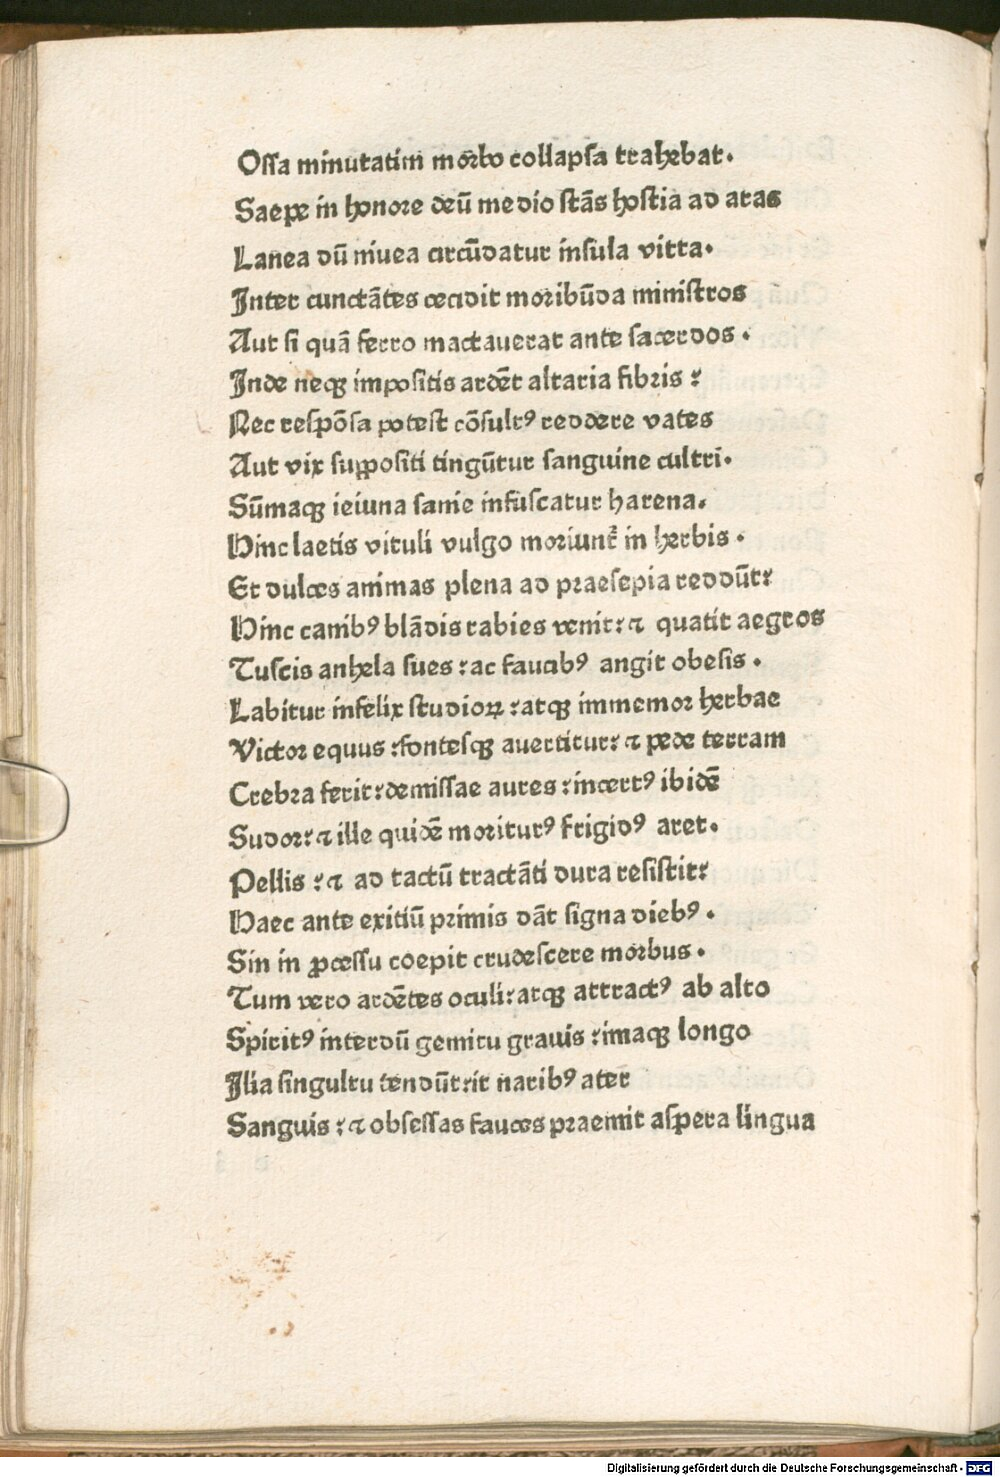 Ossa minutatim morbo collapsa trahebat.
Saepe in honore deū medio stās hostia ad aras
Lanea dū niuea circūdatur insula vitta.
Inter cunctātes cecidit moribūda ministros
Aut si quā ferro mactauerat ante sacerdos.
Inde neqꝫ impositis ardēt altaria fibris:
Nec respōsa potest cōsultꝰ reddere vates
Aut vix suppositi tingūtur sanguine cultri.
Sūmaqꝫ ieiuna sanie infuscatur harena.
Hinc laetis vituli vulgo moriunt᷑ in herbis.
Et dulces animas plena ad praesepia reddūt:
Hinc canibꝰ blādis rabies venit: ⁊ quatit aegros
Tuscis anhela sues: ac faucibꝰ angit obesis.
Labitur infelix studioꝝ: atqꝫ immemor herbae
Victor equus: fontesqꝫ auertitur: ⁊ pede terram
Crebra ferit: demissae aures: incertꝰ ibidē
Sudor: ⁊ ille quidē moriturꝰ frigidꝰ aret.
Pellis: ⁊ ad tactū tractāti dura resistit:
Haec ante exitiū primis dāt signa diebꝰ.
Sin in ꝓcessu coepit crudescere morbus.
Tum vero ardētes oculi: atqꝫ attractꝰ ab alto
Spiritꝰ interdū gemitu grauis: imaqꝫ longo
Ilia singultu tendūt: it naribꝰ ater
Sanguis: ⁊ obsessas fauces praemit aspera lingua
Digitalisierung gefördert durch die Deutsche Forschungsgemeinschaft - DFG